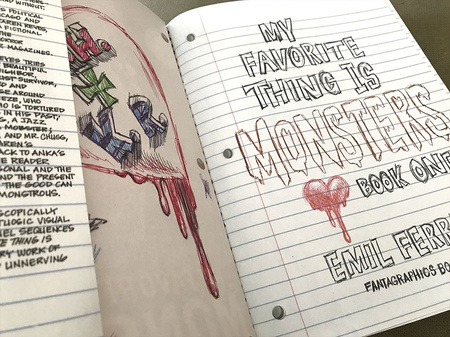 WITHOUT.
POLITICAL
CAGO AND
KAREN REYES,
FICTIONAL
THE
HORROR
MAGAZINES.
REYES TRIES
BEAUTIFUL
NEIGHBOR,
SURVIVOR,
AND
SE AROUND
EZE, WHO
WHO IS TORTURED
IN HIS PAST,
A JAZZ
MOBSTER;
AND MR. CHUGG,
KAREN'S
BACK TO ANKA'S
THE READER
SONAL AND THE
AND THE PRESENT
THE GOOD CAN
MONSTROUS.
SCOPICALLY
TUOSIC VISUAL
NEL SEQUENCES
THING IS
RY WORK OF
UNNERVING
MY
FAVORITE
THING IS
MONSTERS
BOOK ONE
EMIL FERR
FANTAGRAPHICS BO